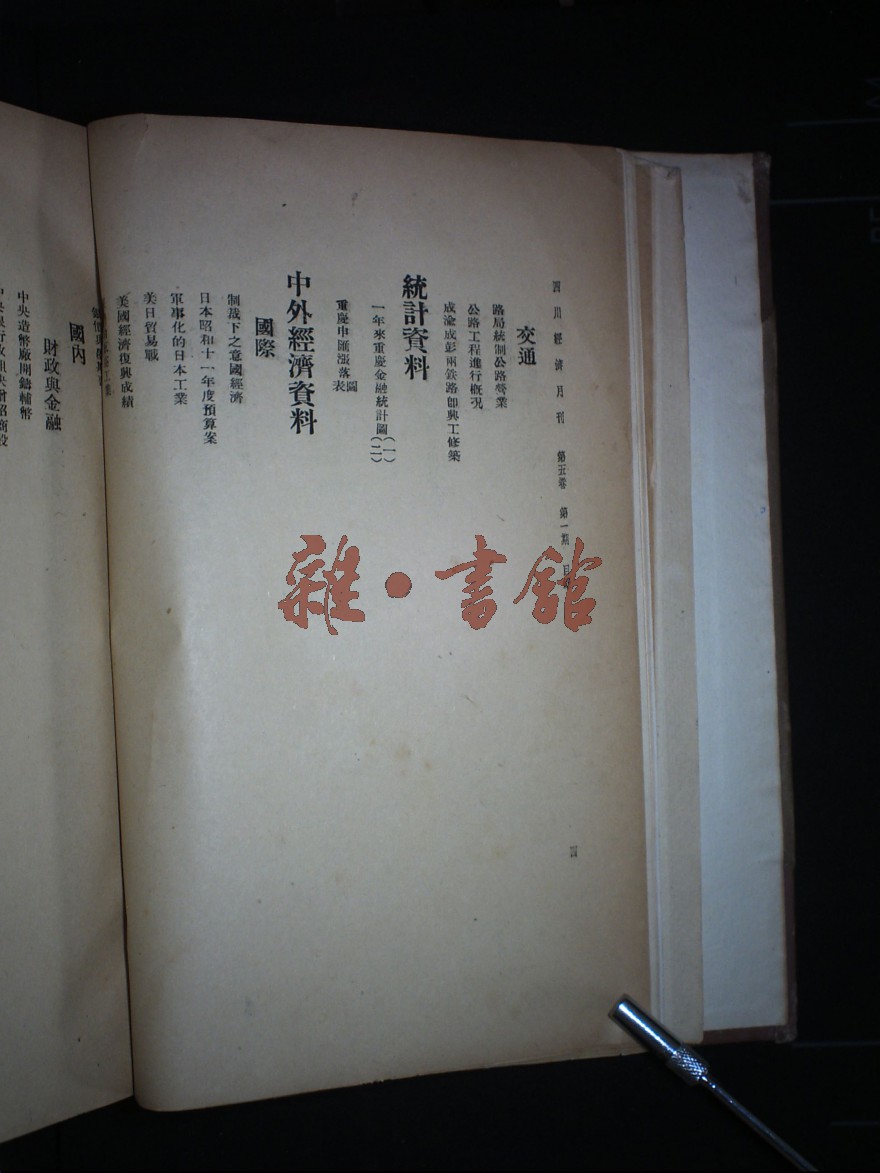 四川經濟月刊 第五卷 第一期 目
交通
路局統制公路營業
公路工程進行概況
成渝成彭兩鐵路卽興工修築
統計資料
一年來重慶金融統計圖(一)(二)
重慶申匯漲落圖表
中外經濟資料
國際
制裁下之意國經濟
日本昭和十一年度預算案
軍事化的日本工業
美日貿易戰
美國經濟復興成績
四
國內
財政與金融
中央造幣廠開鑄輔幣
雜·書館